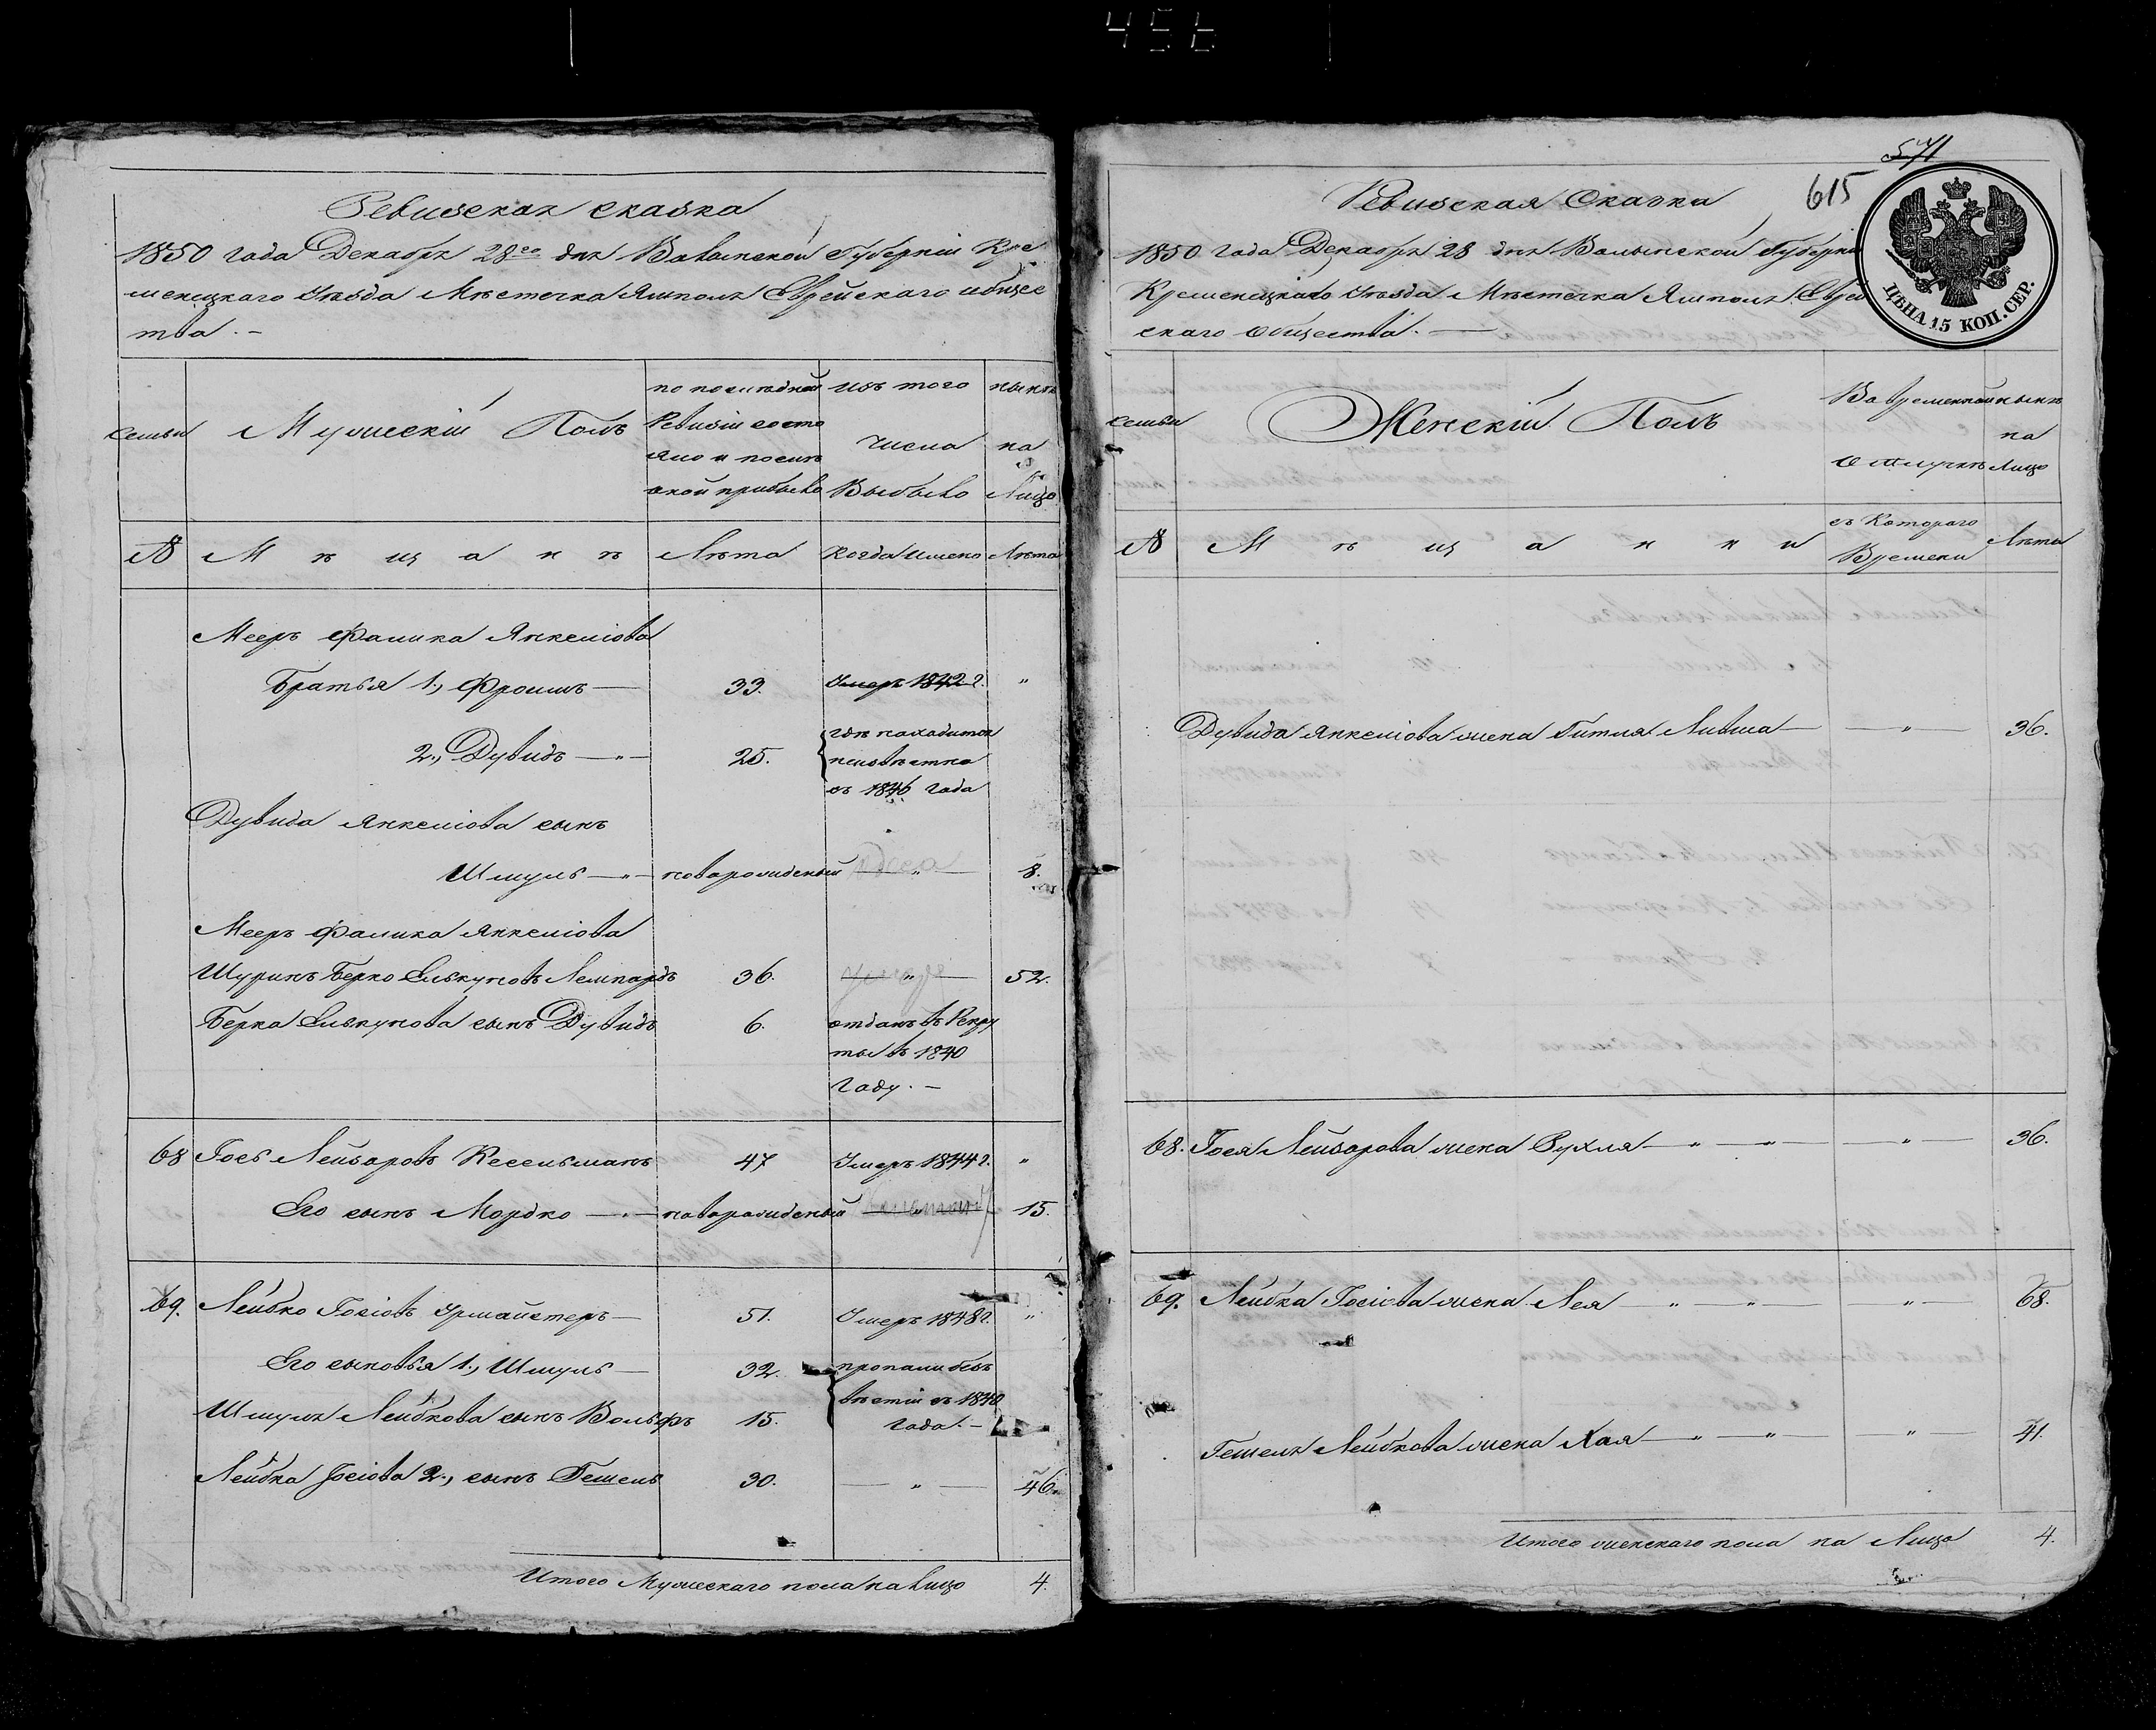 456
Ревизская сказка
1850 года Декабря 28го дня Волынской Губерніи Кре
менецкаго уѣзда Мѣстечка Ямполя Еврейскаго общес
тва. –
семьи
Мужескій Полъ
по послѣдней
Ревизіи состо
яло и послѣ
оной прибыло
изъ того
числа
Выбыло
нынѣ
на
Лицо
№
Мѣщанѣ
Лѣта
когда имено
Лѣта
Мееръ Фалика Янкеліова
Братья 1, Фроимъ — 33. Умеръ 1842 г. "
2, Дувидъ — " — 25. гдѣ находится
неизвѣстно
съ 1846 года
Дувида Янкеліова сынъ
Шмуль — " — новорожденый — " — 8.
Мееръ Фалика Янкеліова
Шуринъ Берко Елькуновъ Лемпардъ 36. — " — 52.
Берка Елькунова сынъ Дувидъ 6. отданъ въ Рекру
ты въ 1840
году. –
68 Гось Лейзаровъ Кесельманъ 47 Умеръ 1844 г. "
Его сынъ Мордко — " — новорожденый — " — 15.
69. Лейбко Госіовъ Урмайстеръ — 51. Умеръ 1848 г. "
Его сыновья 1, Шмуль — 32. пропали безъ
Шмуля Лейбкова сынъ Вольфъ 15. вѣстій съ 1840
года. –
Лейбка Госіова 2, сынъ Гешель 30. — " — 46.
Итого Мужескаго пола на Лицо 4.
571
615
ЦѢНА 15 КОП. СЕР.
Ревизская Сказка
1850 года Декабря 28 дня Волынской Губерніи
Кременецкаго уѣзда Мѣстечка Ямполя Еврей
скаго общества. —
семьи
Женскій Полъ
Во временной
отлучкѣ
нынѣ
на
Лицо
№
Мѣщанки
съ Котораго
Времени
Лѣта
Дувида Янкеліова жена Гитля Ливша — — " — 36.
68. Гося Лейзарова жена Рухля — " — " — — " — 36.
69. Лейбка Госіова жена Лея — " — " — " — 68.
Гешеля Лейбкова жена Хая — " — " — " — 41.
Итого женскаго пола на Лицо 4.